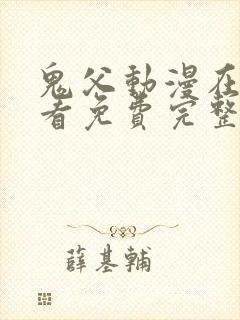 鬼父動漫在
看免費完整
薛基輔